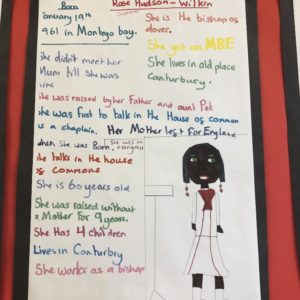 Born
Rose Hudson-Wilkin
anuary 19th
961 in Montego bay.
She is the bishop of
dover.
She got an MBE
She lives in old place
Canturbury.
she didn't meet her
Mum till she was
nine
she was raised by her Father and aunt Pat
she was first to talk in the House of common
is a chaplain. Her Mother left For England
when She was Born.
she talks in the house
of commons
She is 60 years old
She was raised without
a Mother For 9 years.
She Has 4 children
Lives in Conturbry
She works as a bishop